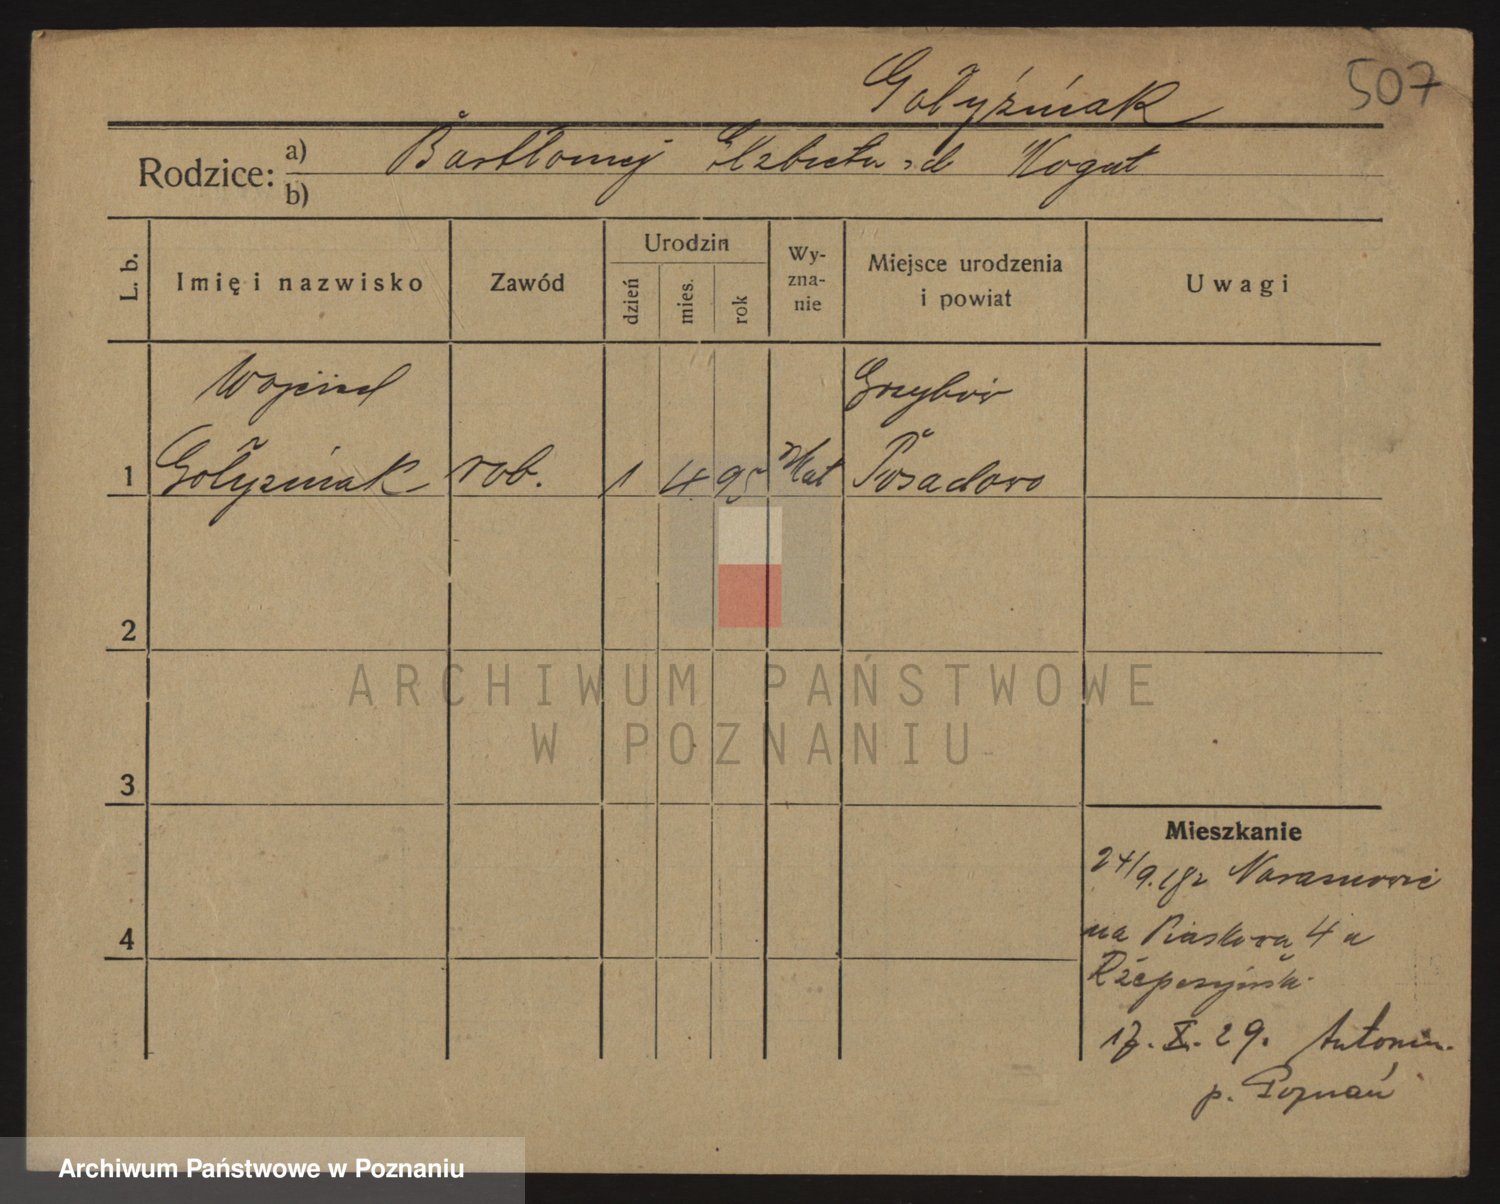 Gołyźniak 507
Rodzice: a) Bartłomiej Elżbieta zd Kogut
b)
L. b. Imię i nazwisko Zawód Urodzin dzień mies. rok Wy-zna-nie Miejsce urodzenia i powiat Uwagi
Wojciech Grzybów
1 Gołyźniak rob. 1 4 95 Kat
2
3
4
Mieszkanie
24/9. Naramowic
na Piaskową 4 u
17. X. 29. Antonin.
p. Poznań
ARCHIWUM PAŃSTWOWE
W POZNANIU
Archiwum Państwowe w Poznaniu